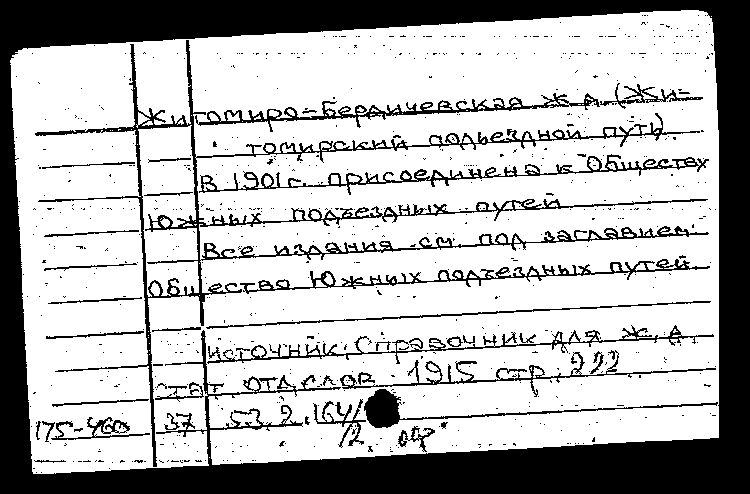 Житомиро-Бердичевская ж д (Жи-
томирский подъездной путь)
В 1901г. присоединена к Обществу
Южных подъездных путей
Все издания см. под заглавием:
Общество Южных подъездных путей.
Источник: Справочник для ж. д.
стат. отд. слов 1915 стр. 222
175-460 37 53.2.164/
/2.